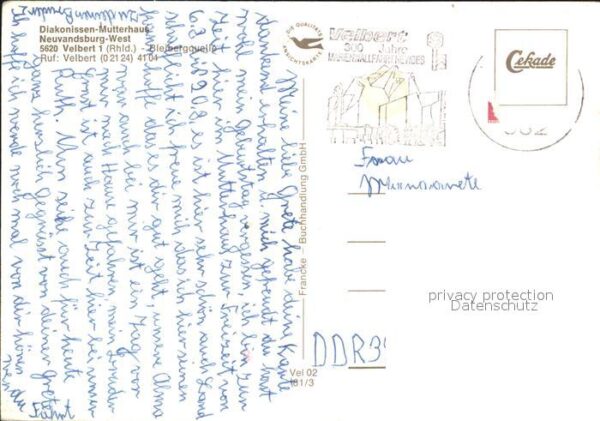 Diakonissen-Mutterhaus
Neuvandsburg-West
5620 Velbert 1 (Rhld.) - Bleibergquelle
Ruf: Velbert (0 21 24) 41 04
DIE QUALITÄTS
ANSICHTSKARTE
Velbert
300 Jahre
MARIENWALLFAHRT NEVIGES
Cekade
562
Frau
DDR 9
privacy protection
Datenschutz
Francke - Buchhandlung GmbH
Vel 02
(81/3
Meine liebe Grete habe deine Karte
dankend erhalten hat mich gefreut du hast
wohl mein Geburtstag vergessen, ich bin zur
Zeit hier im Mutterhaus zur Freizeit vom
6.8 bis 20.8 es ist hier sehr schön auch Land
schaftlich ich freue mich das ich hier sein
kann, hoffe das es dir gut geht, unsere Alma
war auch bei mir ist ein Tag vor
mir nach Hause gefahren, mein Bruder
Ernst ist auch zur Zeit hier bei unser
Ruth. Nun seie auch für heute
ganz herzlich gegrüsst von deiner Grete
Ich hoffe ich werde noch mal von dir hören
wenn du
Fährt
zu deinem Bruder?